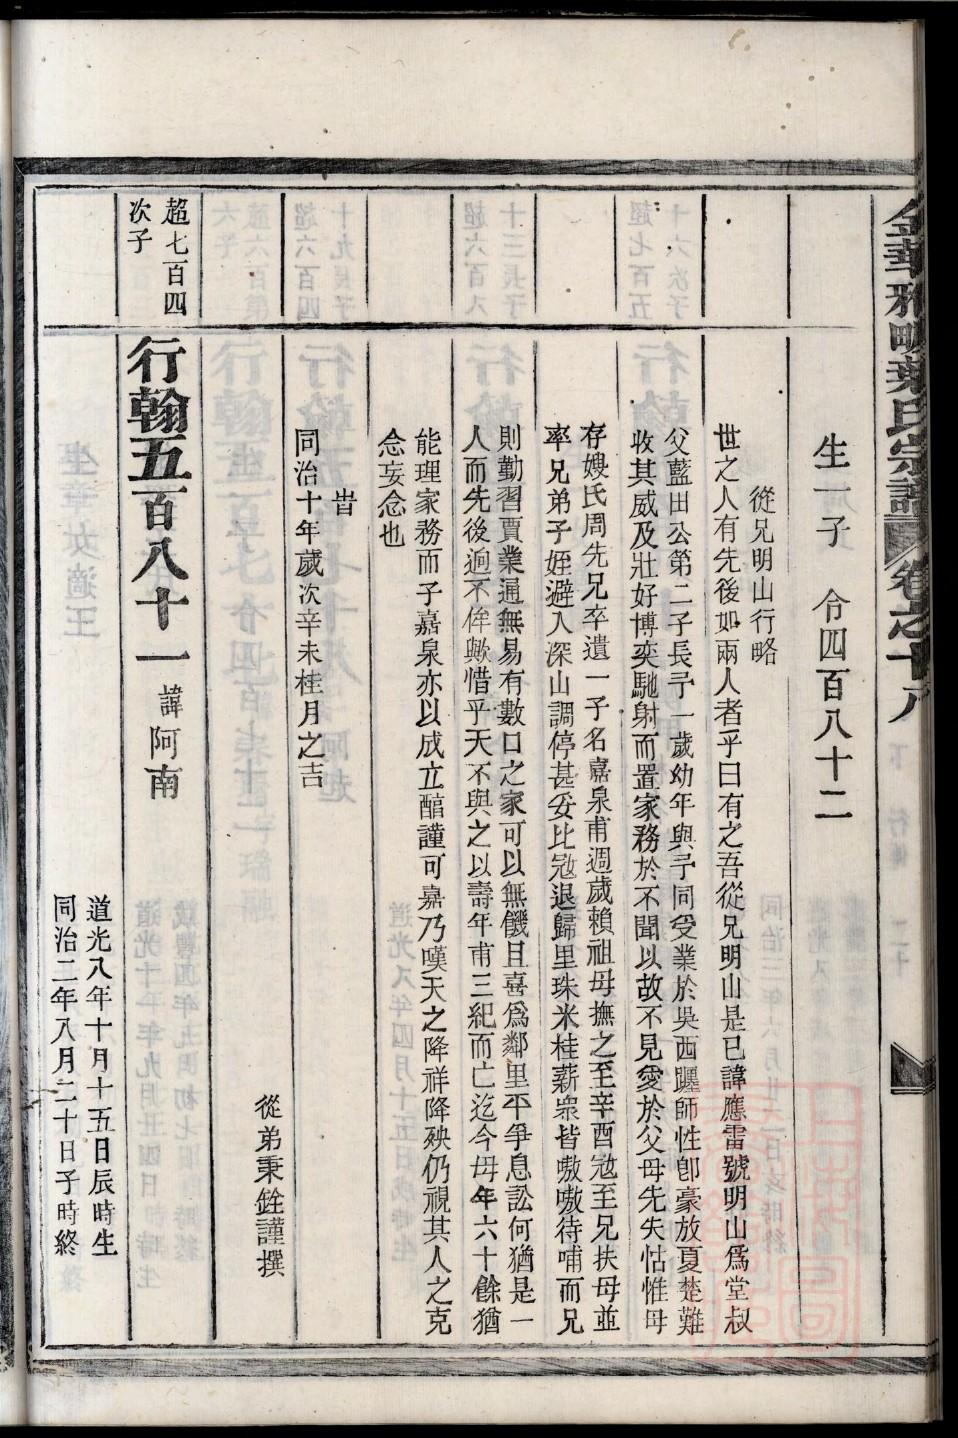 金華雅畈葉氏宗譜 卷之十八
生一子　令四百八十二
從兄明山行略
世之人有先後如兩人者乎曰有之吾從兄明山是已諱應雷號明山爲堂叔
父藍田公第二子長予一歲幼年與予同受業於吳西躔師性卽豪放夏楚難
收其威及壯好博奕馳射而置家務於不聞以故不見愛於父母先失怙惟母
存嫂氏周先兄卒遺一子名嘉泉甫週歲賴祖母撫之至辛酉寇至兄扶母並
率兄弟子姪避入深山調停甚妥比寇退歸里珠米桂薪衆皆嗷嗷待哺而兄
則勤習賈業通無易有數口之家可以無饑且喜爲鄰里平爭息訟何猶是一
人而先後迥不侔歟惜乎天不與之以壽年甫三紀而亡迄今母年六十餘猶
能理家務而子嘉泉亦以成立醕謹可嘉乃嘆天之降祥降殃仍視其人之克
念妄念也
旹
同治十年歲次辛未桂月之吉
從弟秉銓謹撰
超七百四
次子
行翰五百八十一 諱阿南
道光八年十月十五日辰時生
同治二年八月二十日子時終